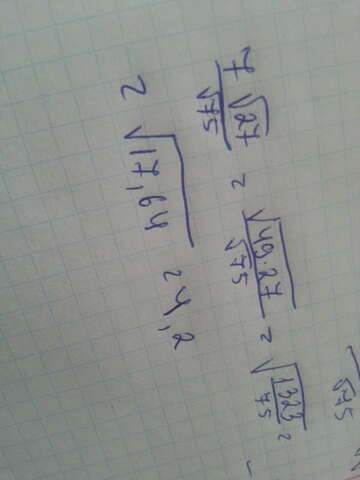 7√27/√75 = √49·27/√75 = √1323/75 =
= √17,64 = 4,2
√75